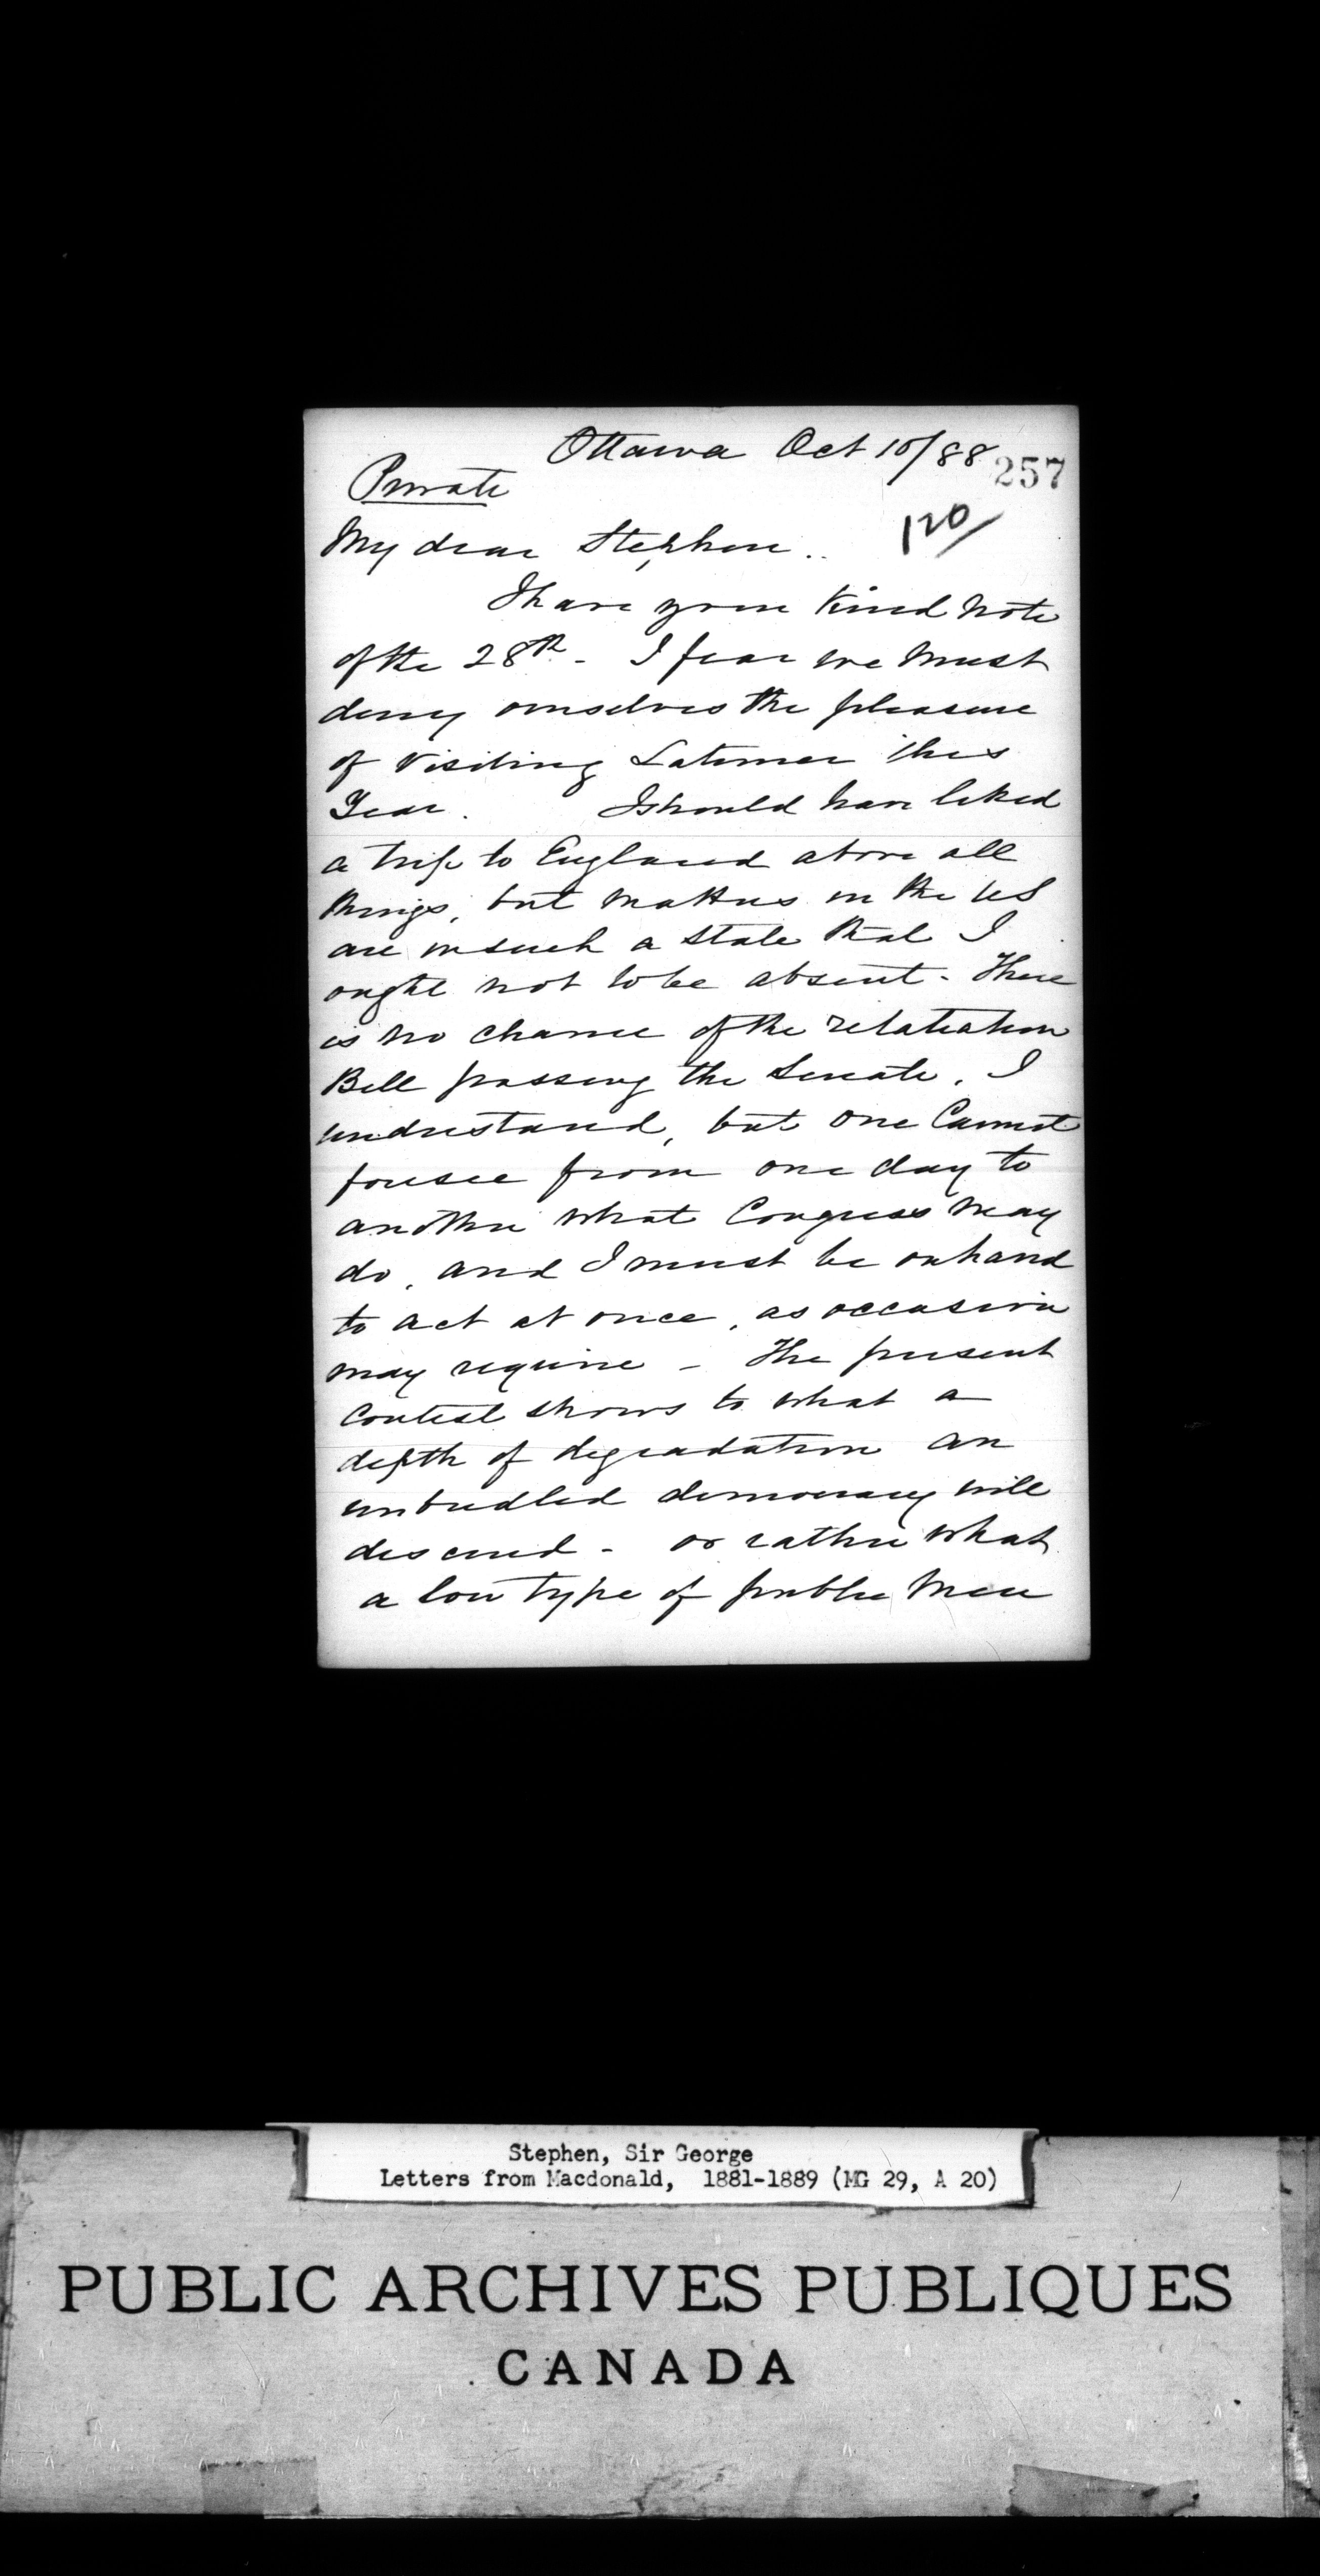 Ottawa Oct 10/88
257
Private
120/
My dear Stephen.
I have your kind note
of the 28th - I fear we must
deny ourselves the pleasure
of visiting Latimer this
Year. I should have liked
a trip to England above all
things, but matters in the US
are in such a state that I
ought not to be absent - There
is no chance of the retaliation
Bill passing the Senate, I
understand, but one Cannot
foresee from one day to
another what Congress may
do, and I must be on hand
to act at once, as occasion
may require - The present
Contest shows to what a
depth of degradation an
unbridled democracy will
descend - or rather what
a low type of public men
Stephen, Sir George
Letters from Macdonald, 1881-1889 (MG 29, A 20)
PUBLIC ARCHIVES PUBLIQUES
CANADA